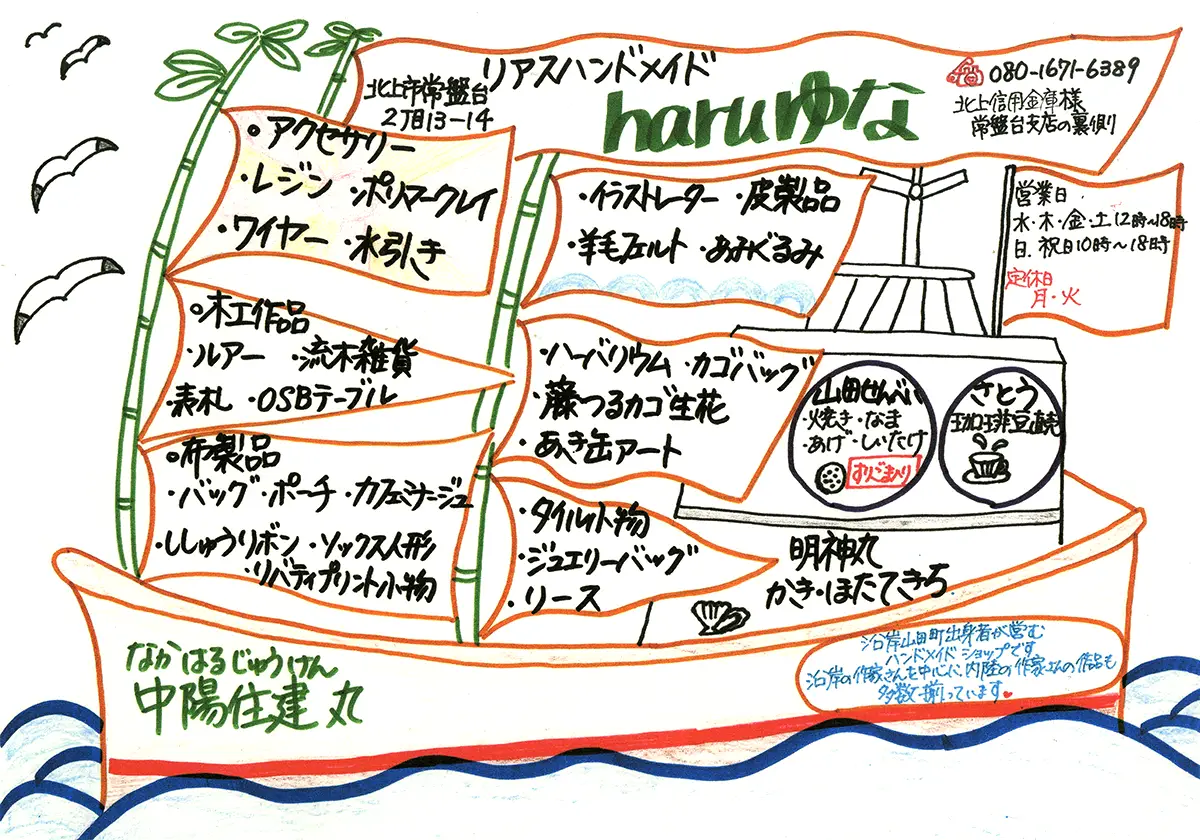 リアスハンドメイド
haruゆな
北上市常盤台
2丁目13-14
080-1671-6389
北上信用金庫様
常盤台支店の裏側
営業日
水・木・金・土12時〜18時
日.祝日10時〜18時
定休日
月・火
○アクセサリー
・レジン ・ポリマークレイ
・ワイヤー ・水引き
○木工作品
・ルアー ・流木雑貨
・表札 ・OSBテーブル
○布製品
・バッグ・ポーチ・カフェミナージュ
・ししゅうリボン ・ソックス人形
・リバティプリント小物
・イラストレーター ・皮製品
・羊毛フェルト ・あみぐるみ
・ハーバリウム ・カゴバッグ
・藤つるカゴ生花
・あき缶アート
・タイル小物
・ジュエリーバッグ
・リース
山田せんべい
・焼き・なま
・あげ・しいたけ
すりごま入り
さとう
珈琲豆直売
明神丸
かき・ほたてきち
なかはるじゅうけん
中陽住建丸
沿岸山田町出身者が営む
ハンドメイドショップです
沿岸の作家さんを中心に、内陸の作家さんの作品も
多数揃っています♥